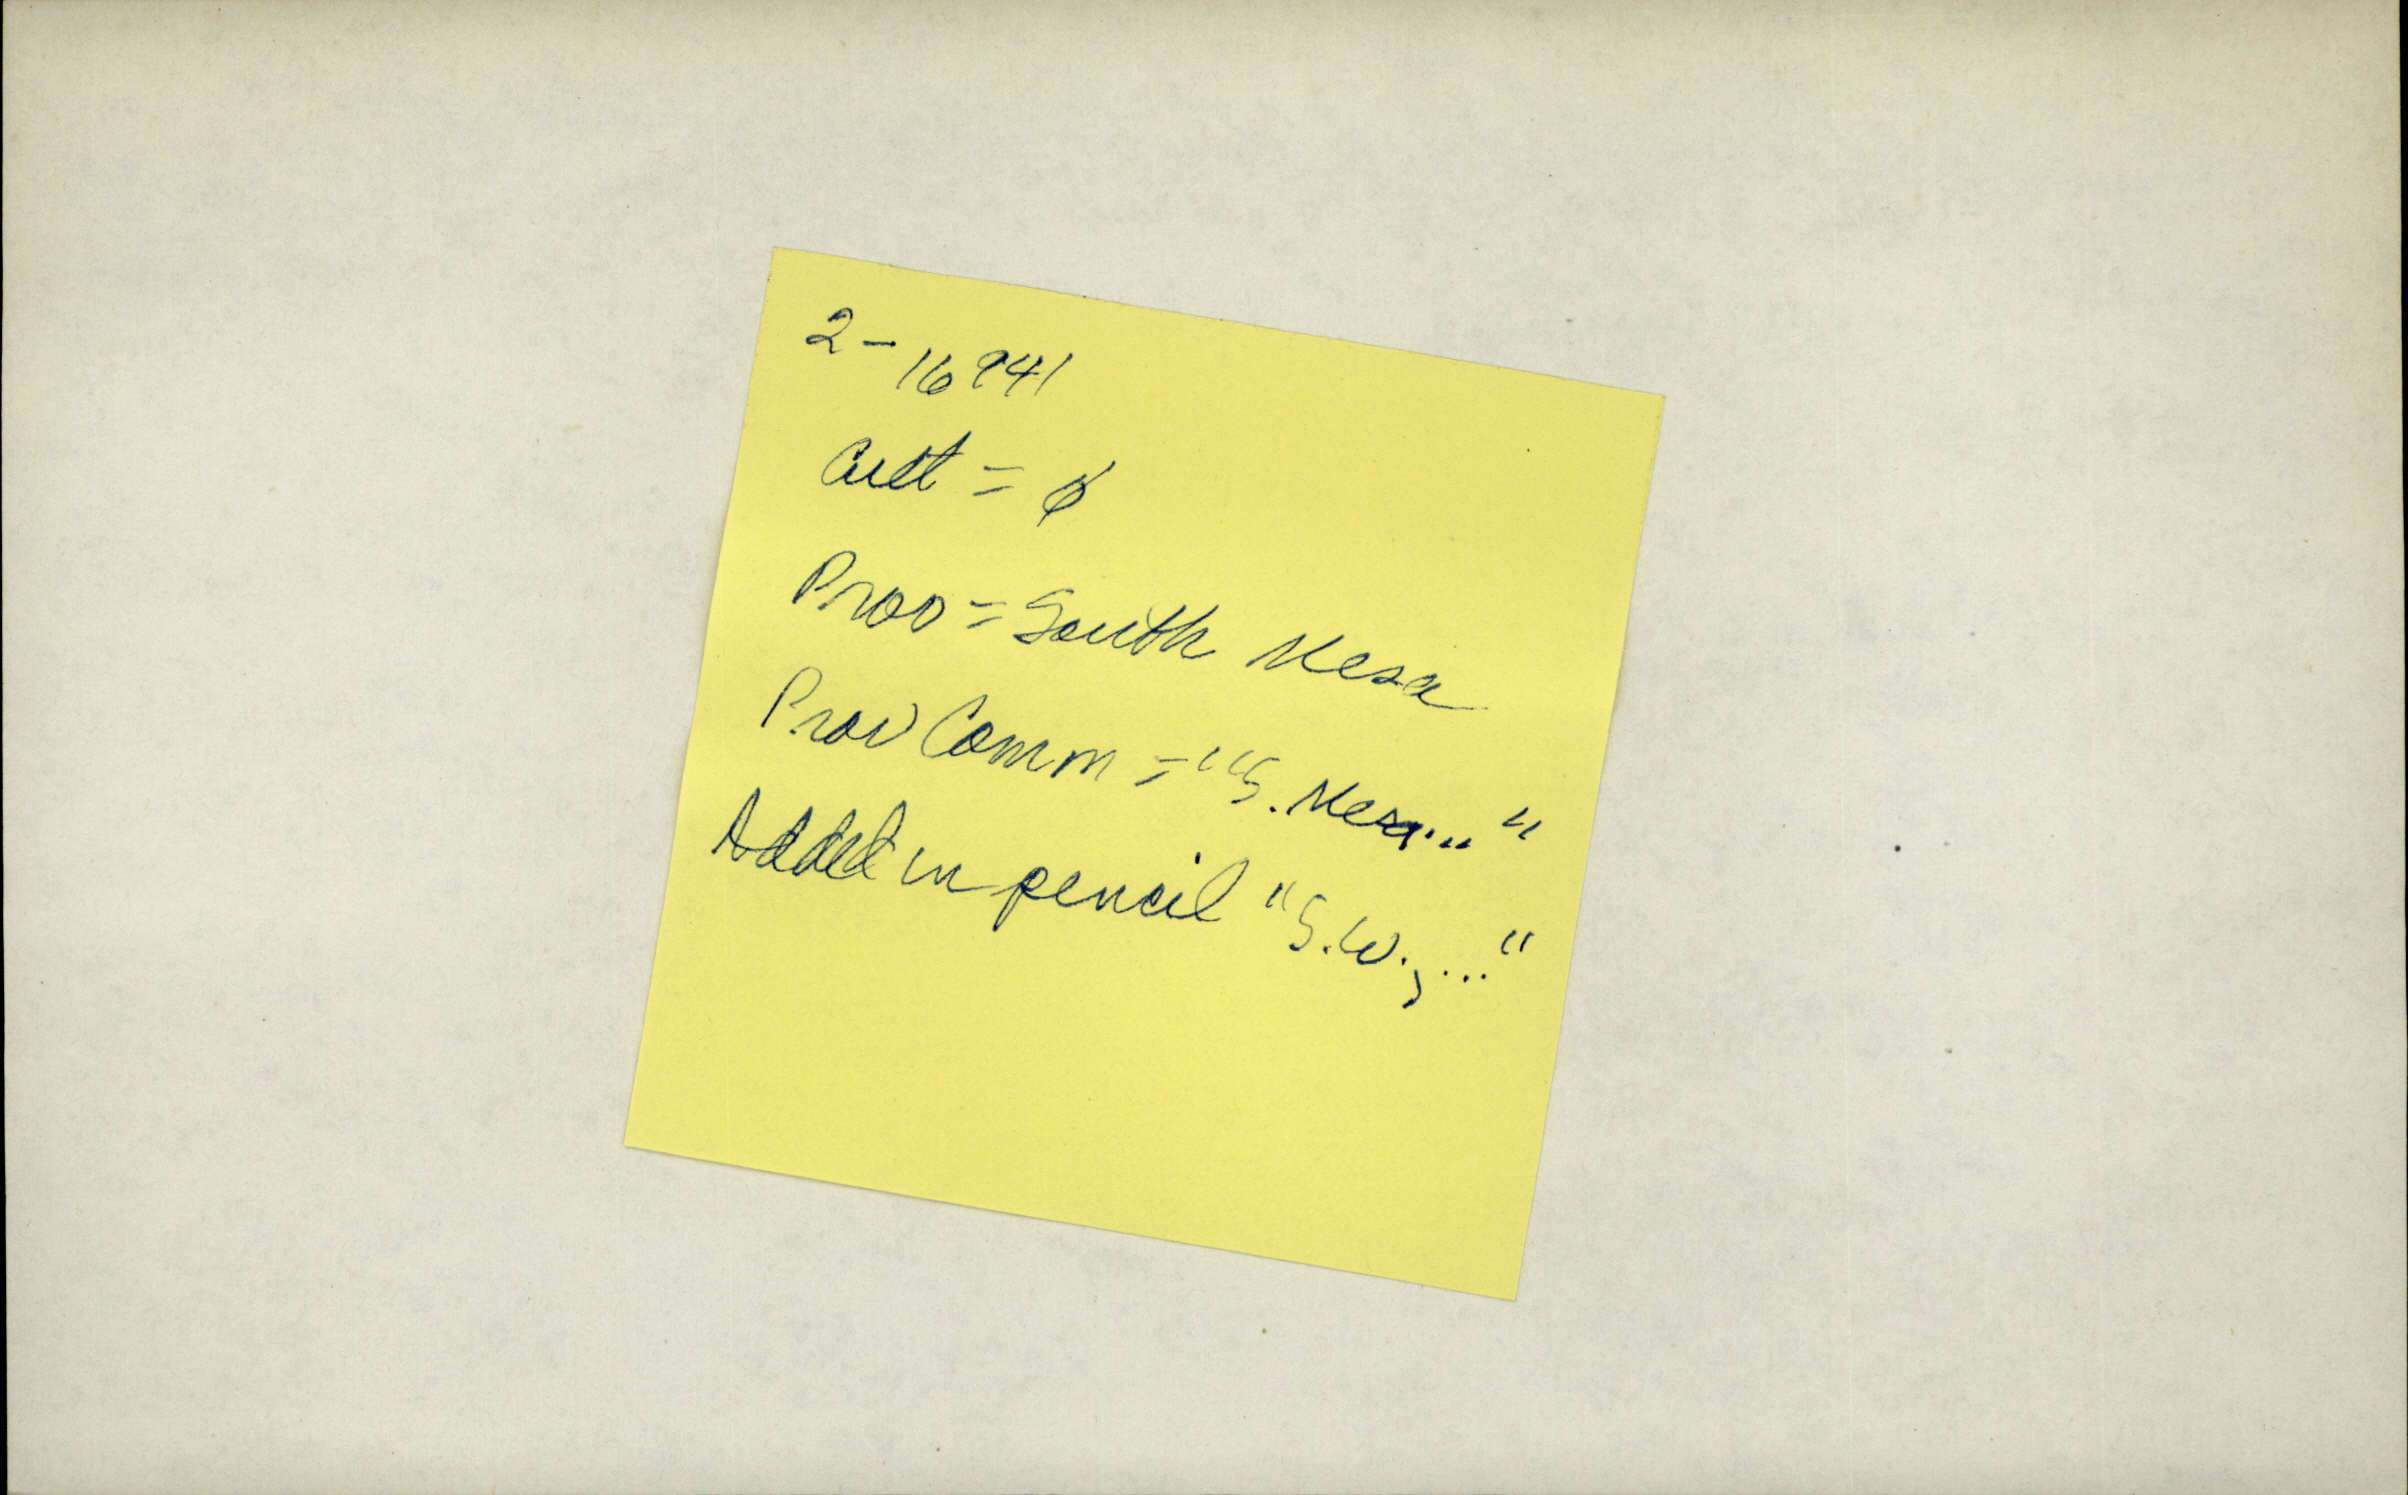 2-16941
Cult = ø
Prov = South Mesa
Prov Comm = "S. Mesa..."
Added in pencil "S.W., ..."